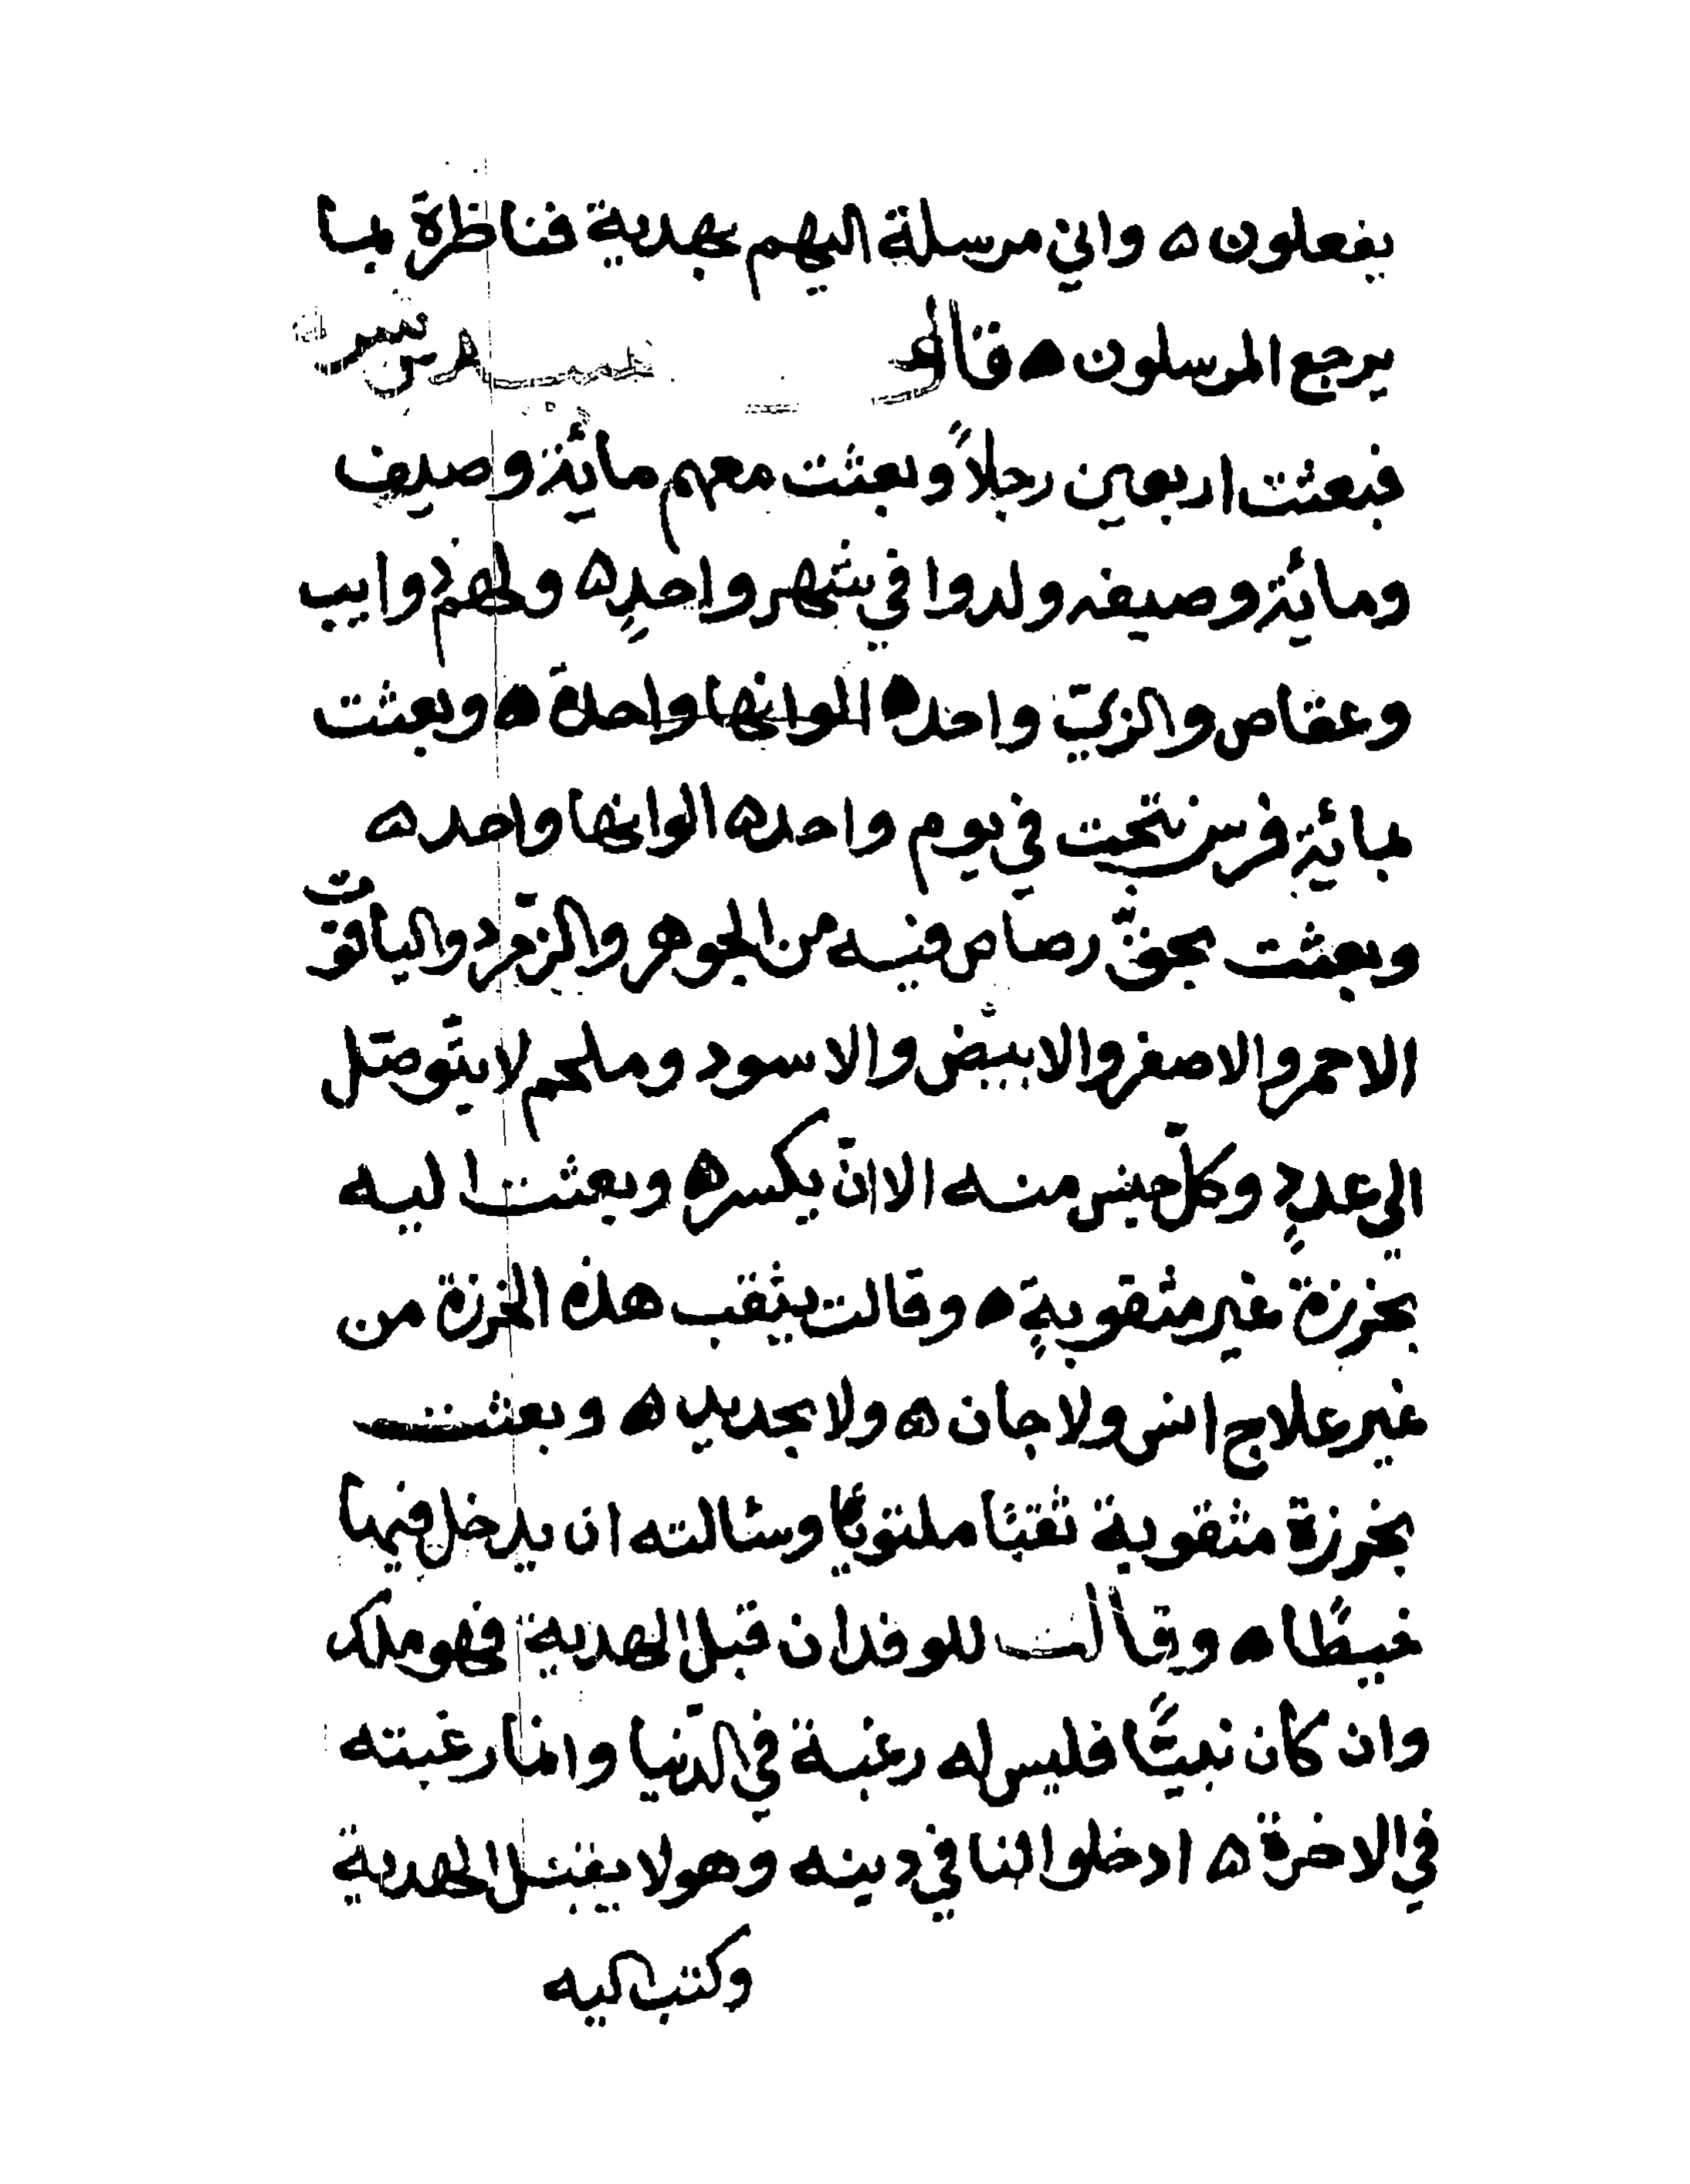 يفعلون ه واني مرسلة اليهم بهدية فناظرة بما
يرجع المرسلون ه قال
فبعثت اربعين رجلاً وبعثت معهم مائة وصيف
ومائة وصيفه ولدوا في شهر واحدٍ ه ولهم ذوايب
وعقاص والزيّ واحد ه الموانها واحدة ه وبعثت
بمائة فرس نتجت في يوم واحد ه الوانها واحد ه
وبعثت بحقّ رصاص فيه من الجوهر والزمّرد والياقوت
الاحمر والاصفر والابيض والاسود وملحم لا يتّوصّل
الي عددٍ وكلّ جنس منه الا انّ يكسر ه وبعثت اليه
بخرزة غير مثقوبةٍ ه وقالت يثقب هذه الخرزة من
غير علاج انس ولا جان ه ولا بحديد ه وبعثت
بخرزة مثقوبة ثقبًا ملتويًا وسالته ان يدخل فيها
خيطًا ه وقالت للوفد ان قبل الهدية فهو ملك
وان كان نبيًّا فليس له رغبة في الدّنيا وانما رغبته
في الاخرة ه ادخلوا لنا في دينه وهو لا يقبل الهدية
وكتب اليه